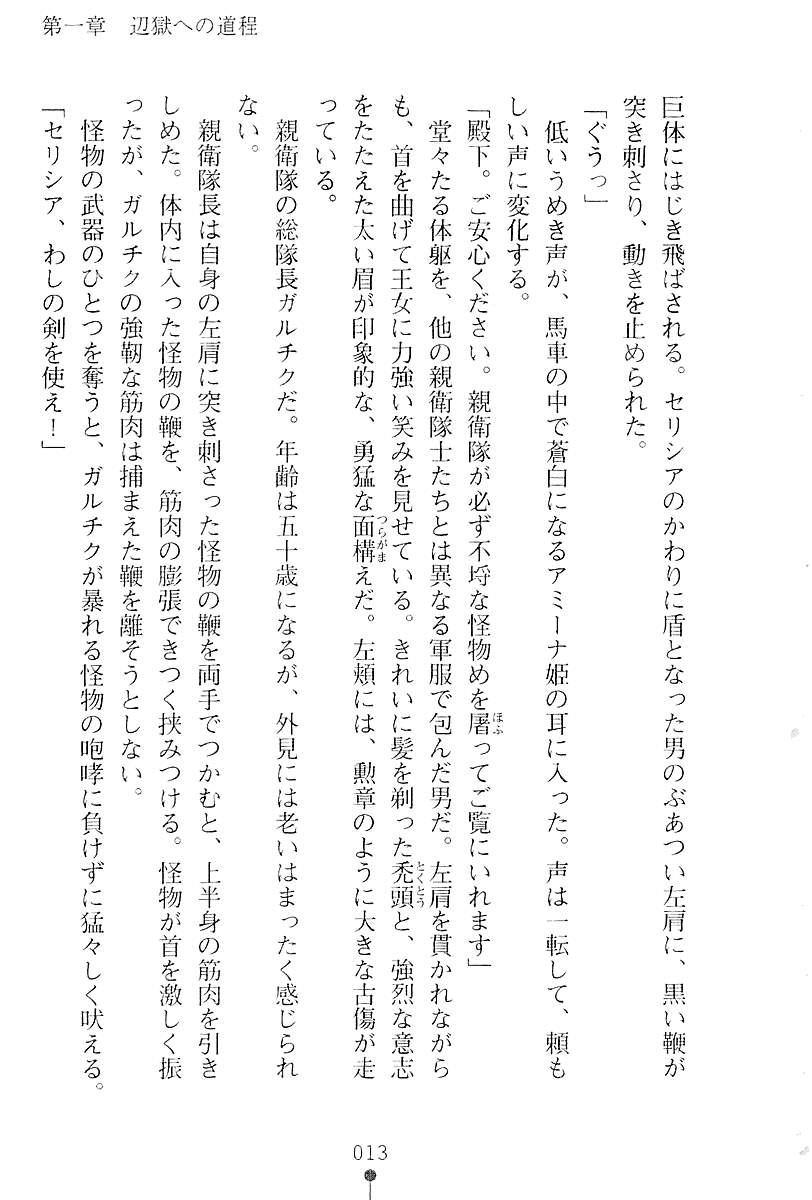 第一章　辺獄への道程
巨体にはじき飛ばされる。セリシアのかわりに盾となった男のぶあつい左肩に、黒い鞭が
突き刺さり、動きを止められた。
「ぐうっ」
　低いうめき声が、馬車の中で蒼白になるアミーナ姫の耳に入った。声は一転して、頼も
しい声に変化する。
「殿下。ご安心ください。親衛隊が必ず不埒な怪物めを屠ってご覧にいれます」
ほふ
　堂々たる体躯を、他の親衛隊士たちとは異なる軍服で包んだ男だ。左肩を貫かれながら
も、首を曲げて王女に力強い笑みを見せている。きれいに髪を剃った禿頭と、強烈な意志
とくとう
をたたえた太い眉が印象的な、勇猛な面構えだ。左頬には、勲章のように大きな古傷が走
つらがま
っている。
　親衛隊の総隊長ガルチクだ。年齢は五十歳になるが、外見には老いはまったく感じられ
ない。
　親衛隊長は自身の左肩に突き刺さった怪物の鞭を両手でつかむと、上半身の筋肉を引き
しめた。体内に入った怪物の鞭を、筋肉の膨張できつく挟みつける。怪物が首を激しく振
ったが、ガルチクの強靭な筋肉は捕まえた鞭を離そうとしない。
　怪物の武器のひとつを奪うと、ガルチクが暴れる怪物の咆哮に負けずに猛々しく吠える。
「セリシア、わしの剣を使え！」
013